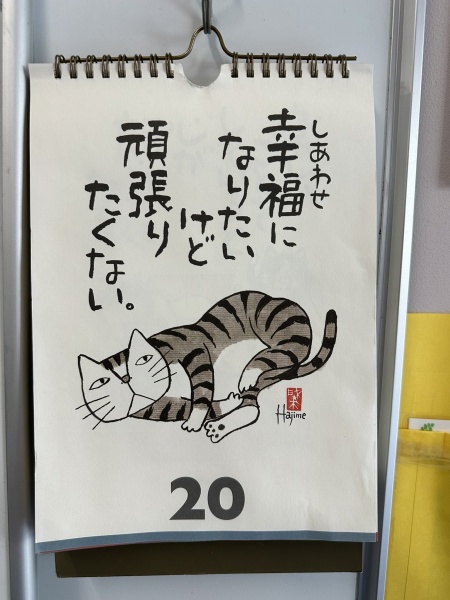 しあわせ
幸福に
なりたい
けど
頑張り
たくない。
Hajime
20